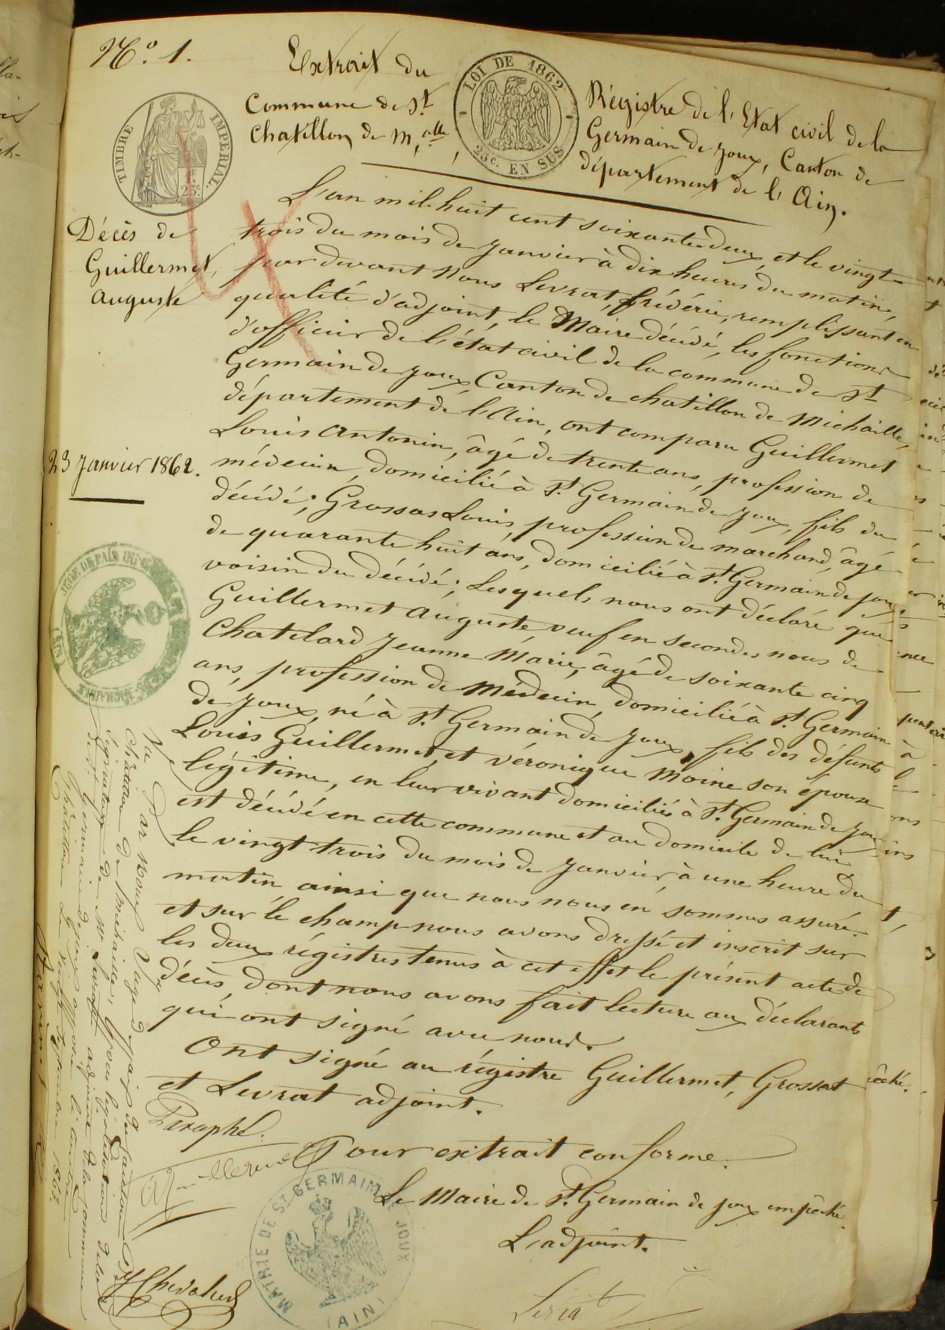 N.° 1.
Extrait du Régistre de l'Etat civil de la
Commune de St. Germain de Joux, Canton de
Chatillon de M.alle, département de l'Ain.
TIMBRE IMPERIAL.
LOI DE 1862
25c. EN SUS
Décès de
Guillermet,
Auguste
23 Janvier 1862.
L'an mil huit cent soixante deux, et le vingt
trois du mois de Janvier à dix heures du matin,
par devant Nous Levrat frédéric, remplissant en
qualité d'adjoint, le Maire décédé, les fonctions
d'officier de l'état civil de la commune de St.
Germain de Joux, Canton de chatillon de Michaille,
département de l'Ain, ont comparu Guillermet
Louis Antonin, âgé de trente ans, profession de
médecin, domicilié à St. Germain de Joux, fils du
décédé; Grossas Louis, profession de marchand, âgé
de quarante huit ans, domicilié à St. Germain de Joux
voisin du décédé; Lesquels nous ont déclaré que
Guillermet Auguste veuf en secondes nous de
Chatelard Jeanne Marie, âgé de soixante cinq
ans, profession de Médecin, domicilié à St. Germain
de Joux, né à St. Germain de Joux, fils des défunts
Louis Guillermet, et véronique Moine son épouse
légitime, en leur vivant domiciliés à St. Germain de Joux
est décédé en cette commune et au domicile de lui
le vingt trois du mois de Janvier à une heure du
matin ainsi que nous nous en sommes assuré.
et sur le champ nous avons dressé et inscrit sur
les deux régistres tenus à cet effet le présent acte de
décès, dont nous avons fait lecture aux déclarants
qui ont signé avec nous.
Ont signé au régistre Guillermet, Grossat
et Levrat adjoint.
Paraphé.
Pour extrait conforme.
Le Maire de St. Germain de Joux empêché.
L'adjoint.
MAIRIE DE ST GERMAIN DE JOUX
(AIN)
Vu Par Nous Juge de Paix du Canton de
Chatillon de Michaille, pour légalisation de la
signature de Mr. Levrat adjoint de la commune